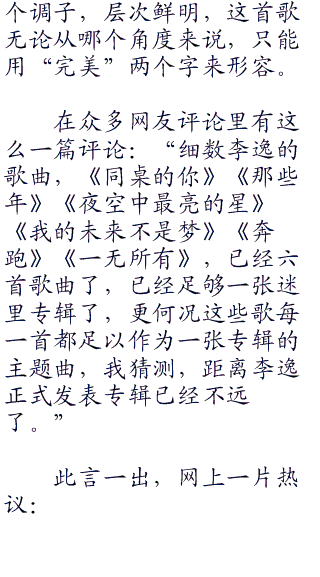 个调子，层次鲜明，这首歌
无论从哪个角度来说，只能
用“完美”两个字来形容。
在众多网友评论里有这
么一篇评论：“细数李逸的
歌曲，《同桌的你》《那些
年》《夜空中最亮的星》
《我的未来不是梦》《奔
跑》《一无所有》，已经六
首歌曲了，已经足够一张迷
里专辑了，更何况这些歌每
一首都足以作为一张专辑的
主题曲，我猜测，距离李逸
正式发表专辑已经不远
了。”
此言一出，网上一片热
议：